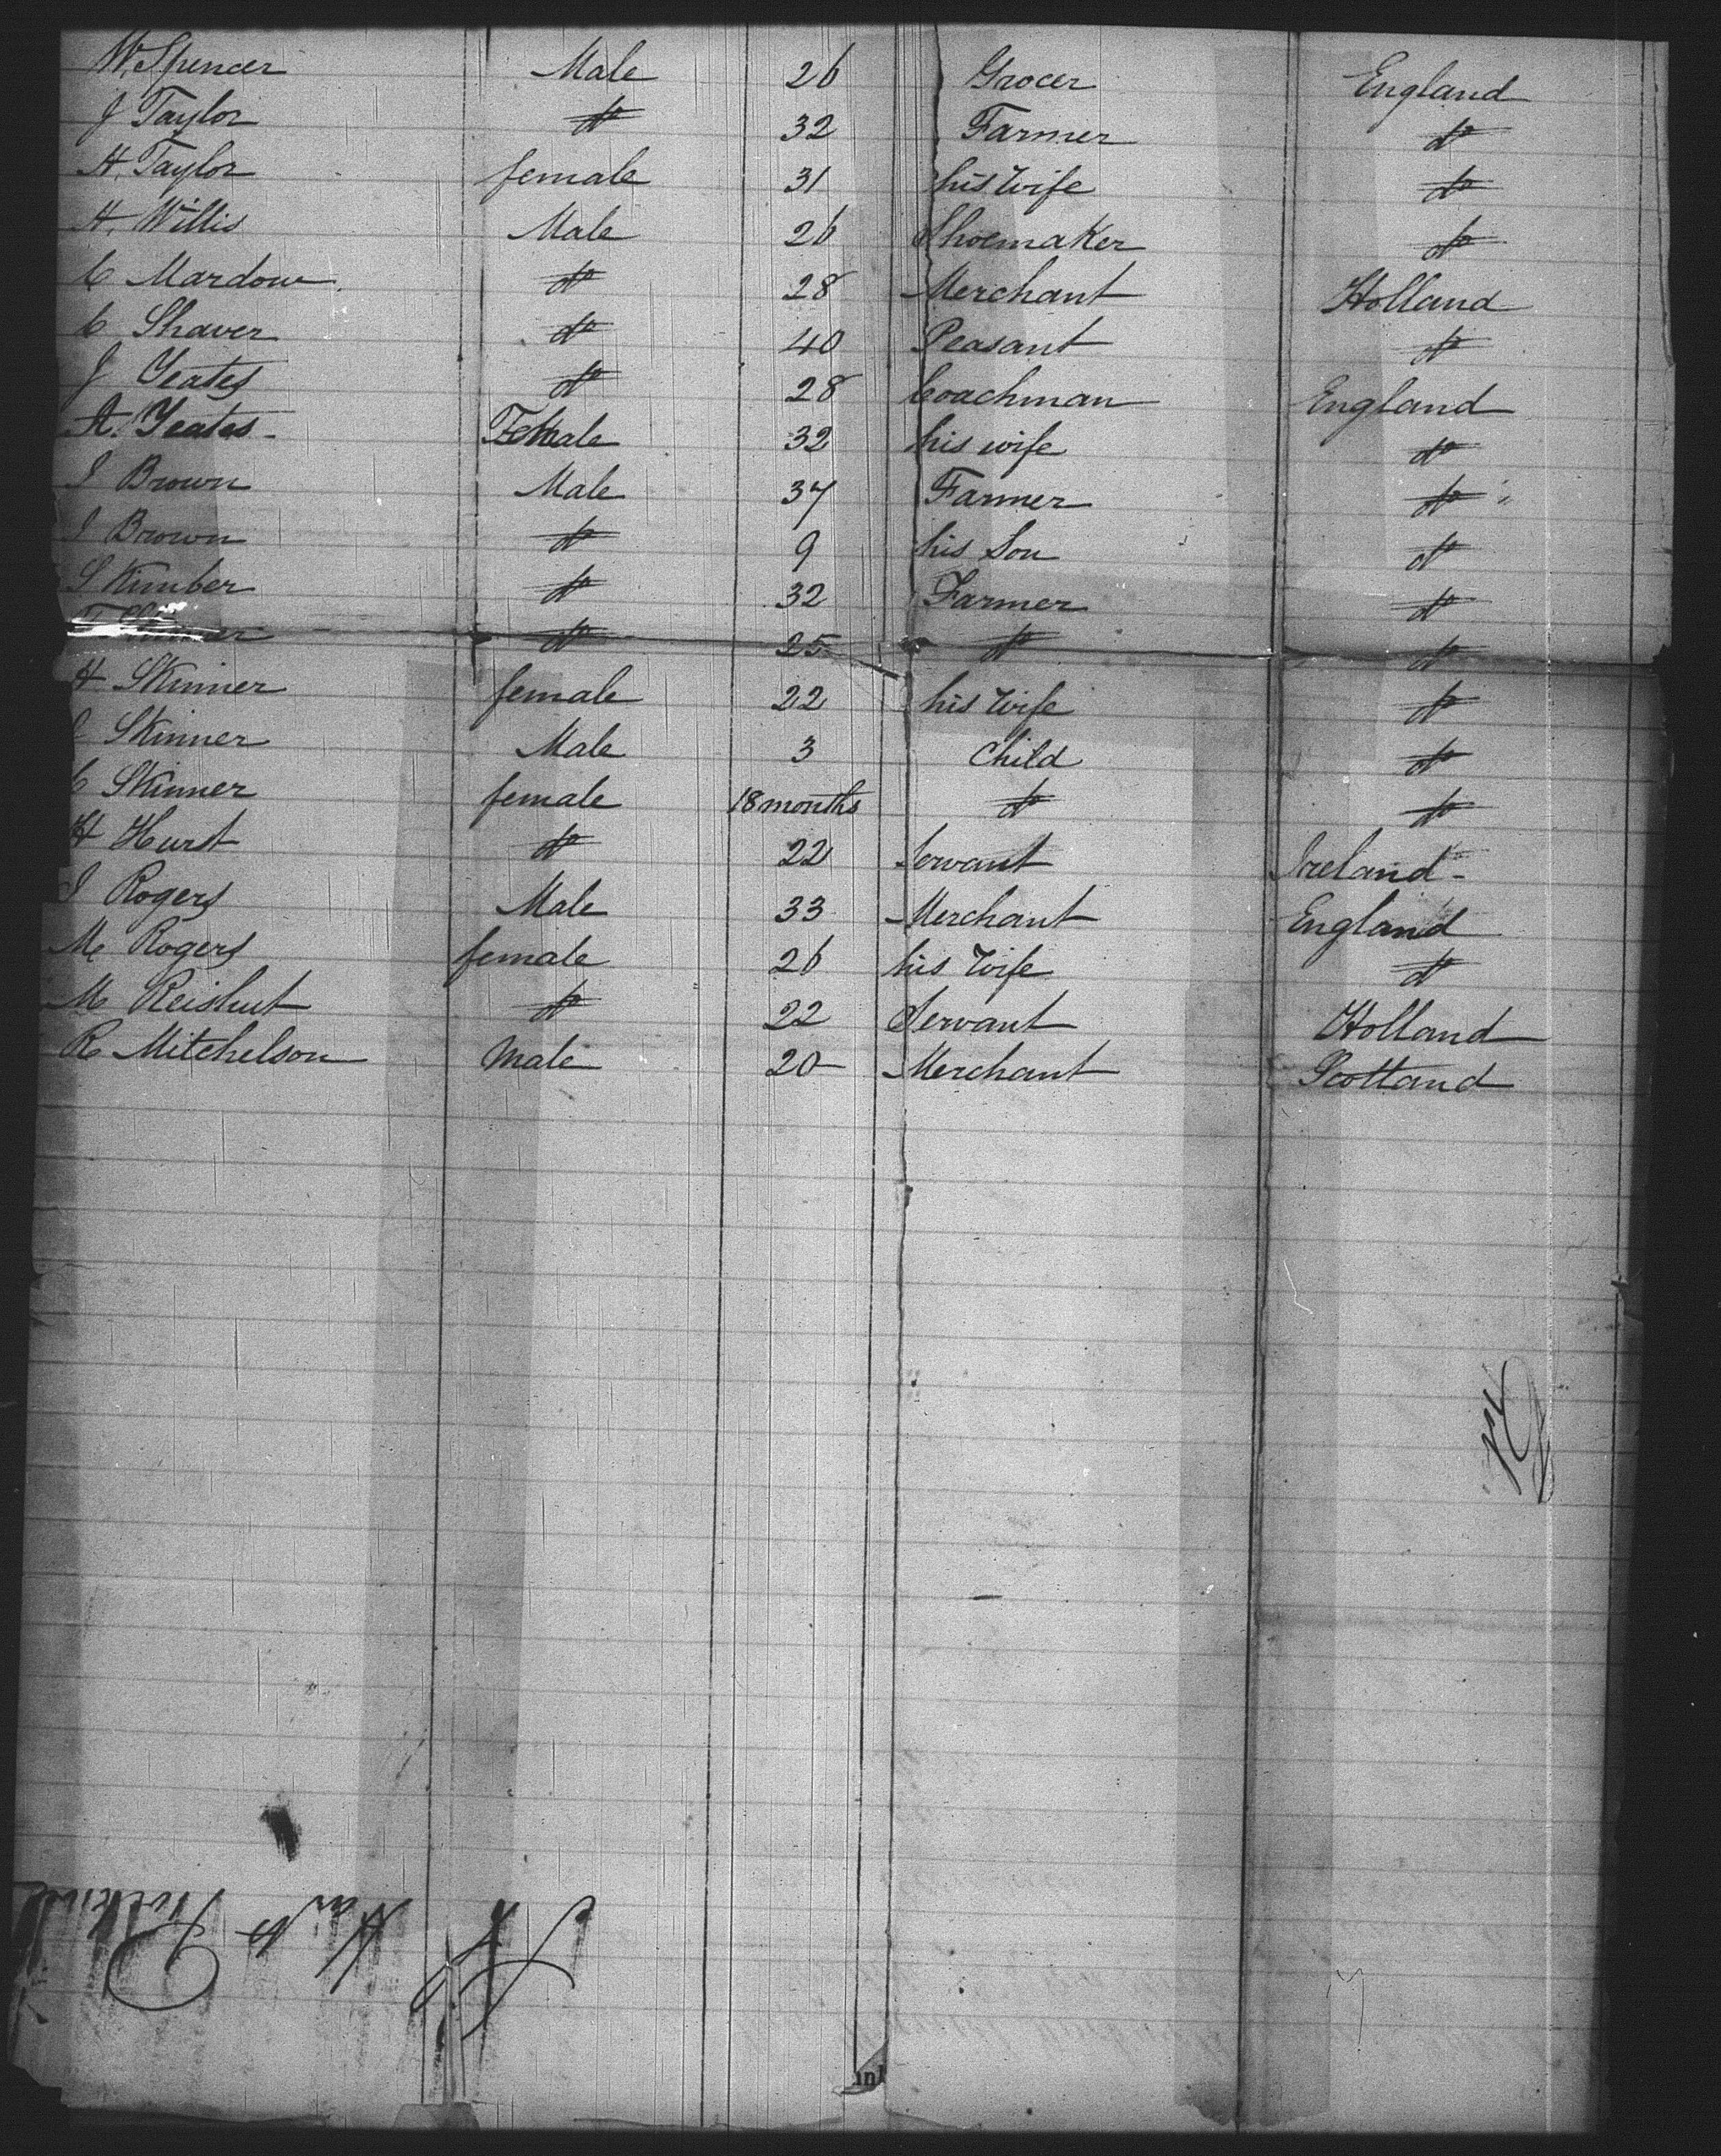 W. Spencer Male 26 Grocer England
J Taylor do 32 Farmer do
H. Taylor female 31 his wife do
H. Willis Male 26 Shoemaker do
C Mardow do 28 Merchant Holland
C Shaver do 40 Peasant do
J Yeates do 28 Coachman England
A. Yeates Female 32 his wife do
I Brown Male 37 Farmer do
I Brown do 9 his Son do
S Kimber do 32 Farmer do
do 25 do do
H Skinner female 22 his wife do
Skinner Male 3 Child do
C Skinner female 18 months do do
H Hurst do 22 Servant Ireland
I Rogers Male 33 Merchant England
M Rogers female 26 his wife do
M Reishut do 22 Servant Holland
R Mitchelson male 20 Merchant Scotland